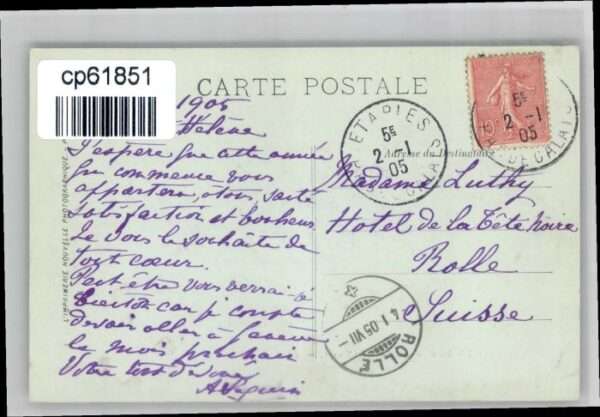 cp61851
CARTE POSTALE
1905
Hélène
J'espère que cette année
que commence vous
apportera, à tous, santé
satisfaction et bonheur
Je vous le souhaite de
tout cœur.
Peut être vous verrai-je
bientôt car je compte
aller à
le mois prochain
Votre tout dévoué
ETAPLES
5E
2 -1
05
PAS-DE-CALAIS
5E
2 -1
05
DE-CALAIS
Adresse du Destinataire
Madame Luthy
Hotel de la Tête noire
Rolle
Suisse
4.1.05.VII-
ROLLE
L'IMPRIMERIE NOUVELLE PHOTOGRAPHIQUE